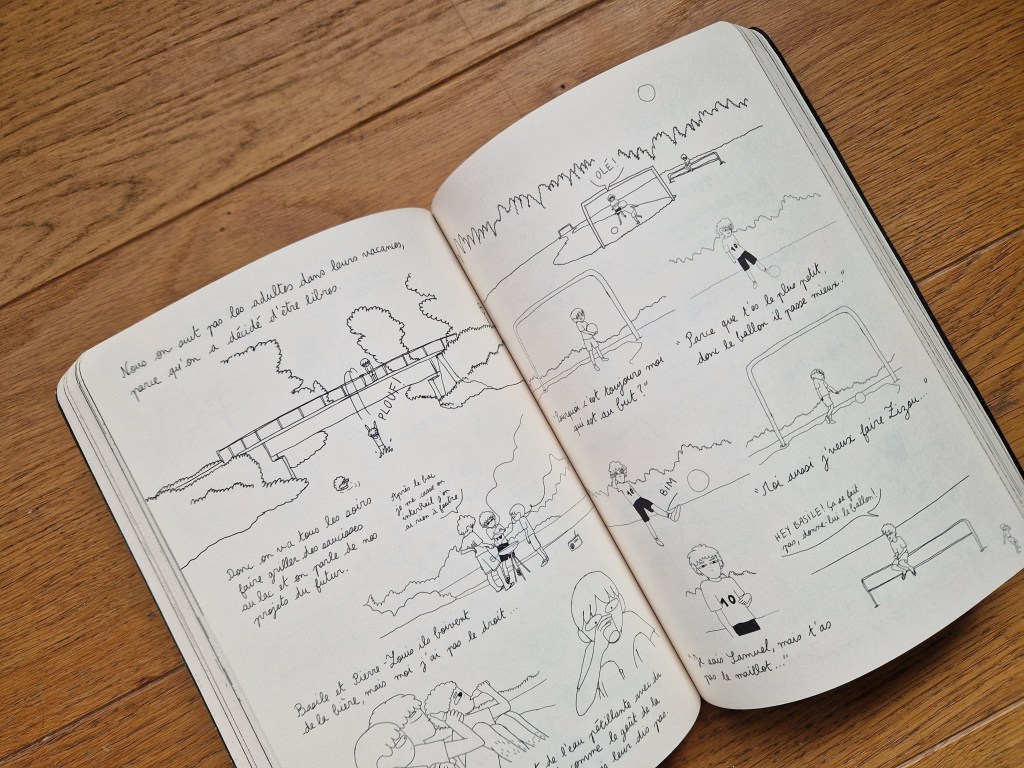 Nous on suit pas les adultes dans leurs vacances,
parce qu'on a décidé d'être libres.
PLOUF!
Donc on va tous les soirs
faire griller des saucisses
au lac et on parle de nos
projets du futur.
Après le bac
je me casse on
interrail, y'a
rien à foutre
Basile et Pierre-Louis ils boivent
de la bière, mais moi j'ai pas le droit...
de l'eau pétillante avec du
comme le goût de la
leur dis pas.
OLÉ!
10
"Pourquoi c'est toujours moi
qui est au but?"
"Parce que t'es le plus petit,
donc le ballon il passe mieux."
BIM
"Moi aussi j'veux faire Zizou..."
10
HEY BASILE! Ça se fait
pas, donne-lui le ballon!
sais Samuel, mais t'as
pas le maillot..."